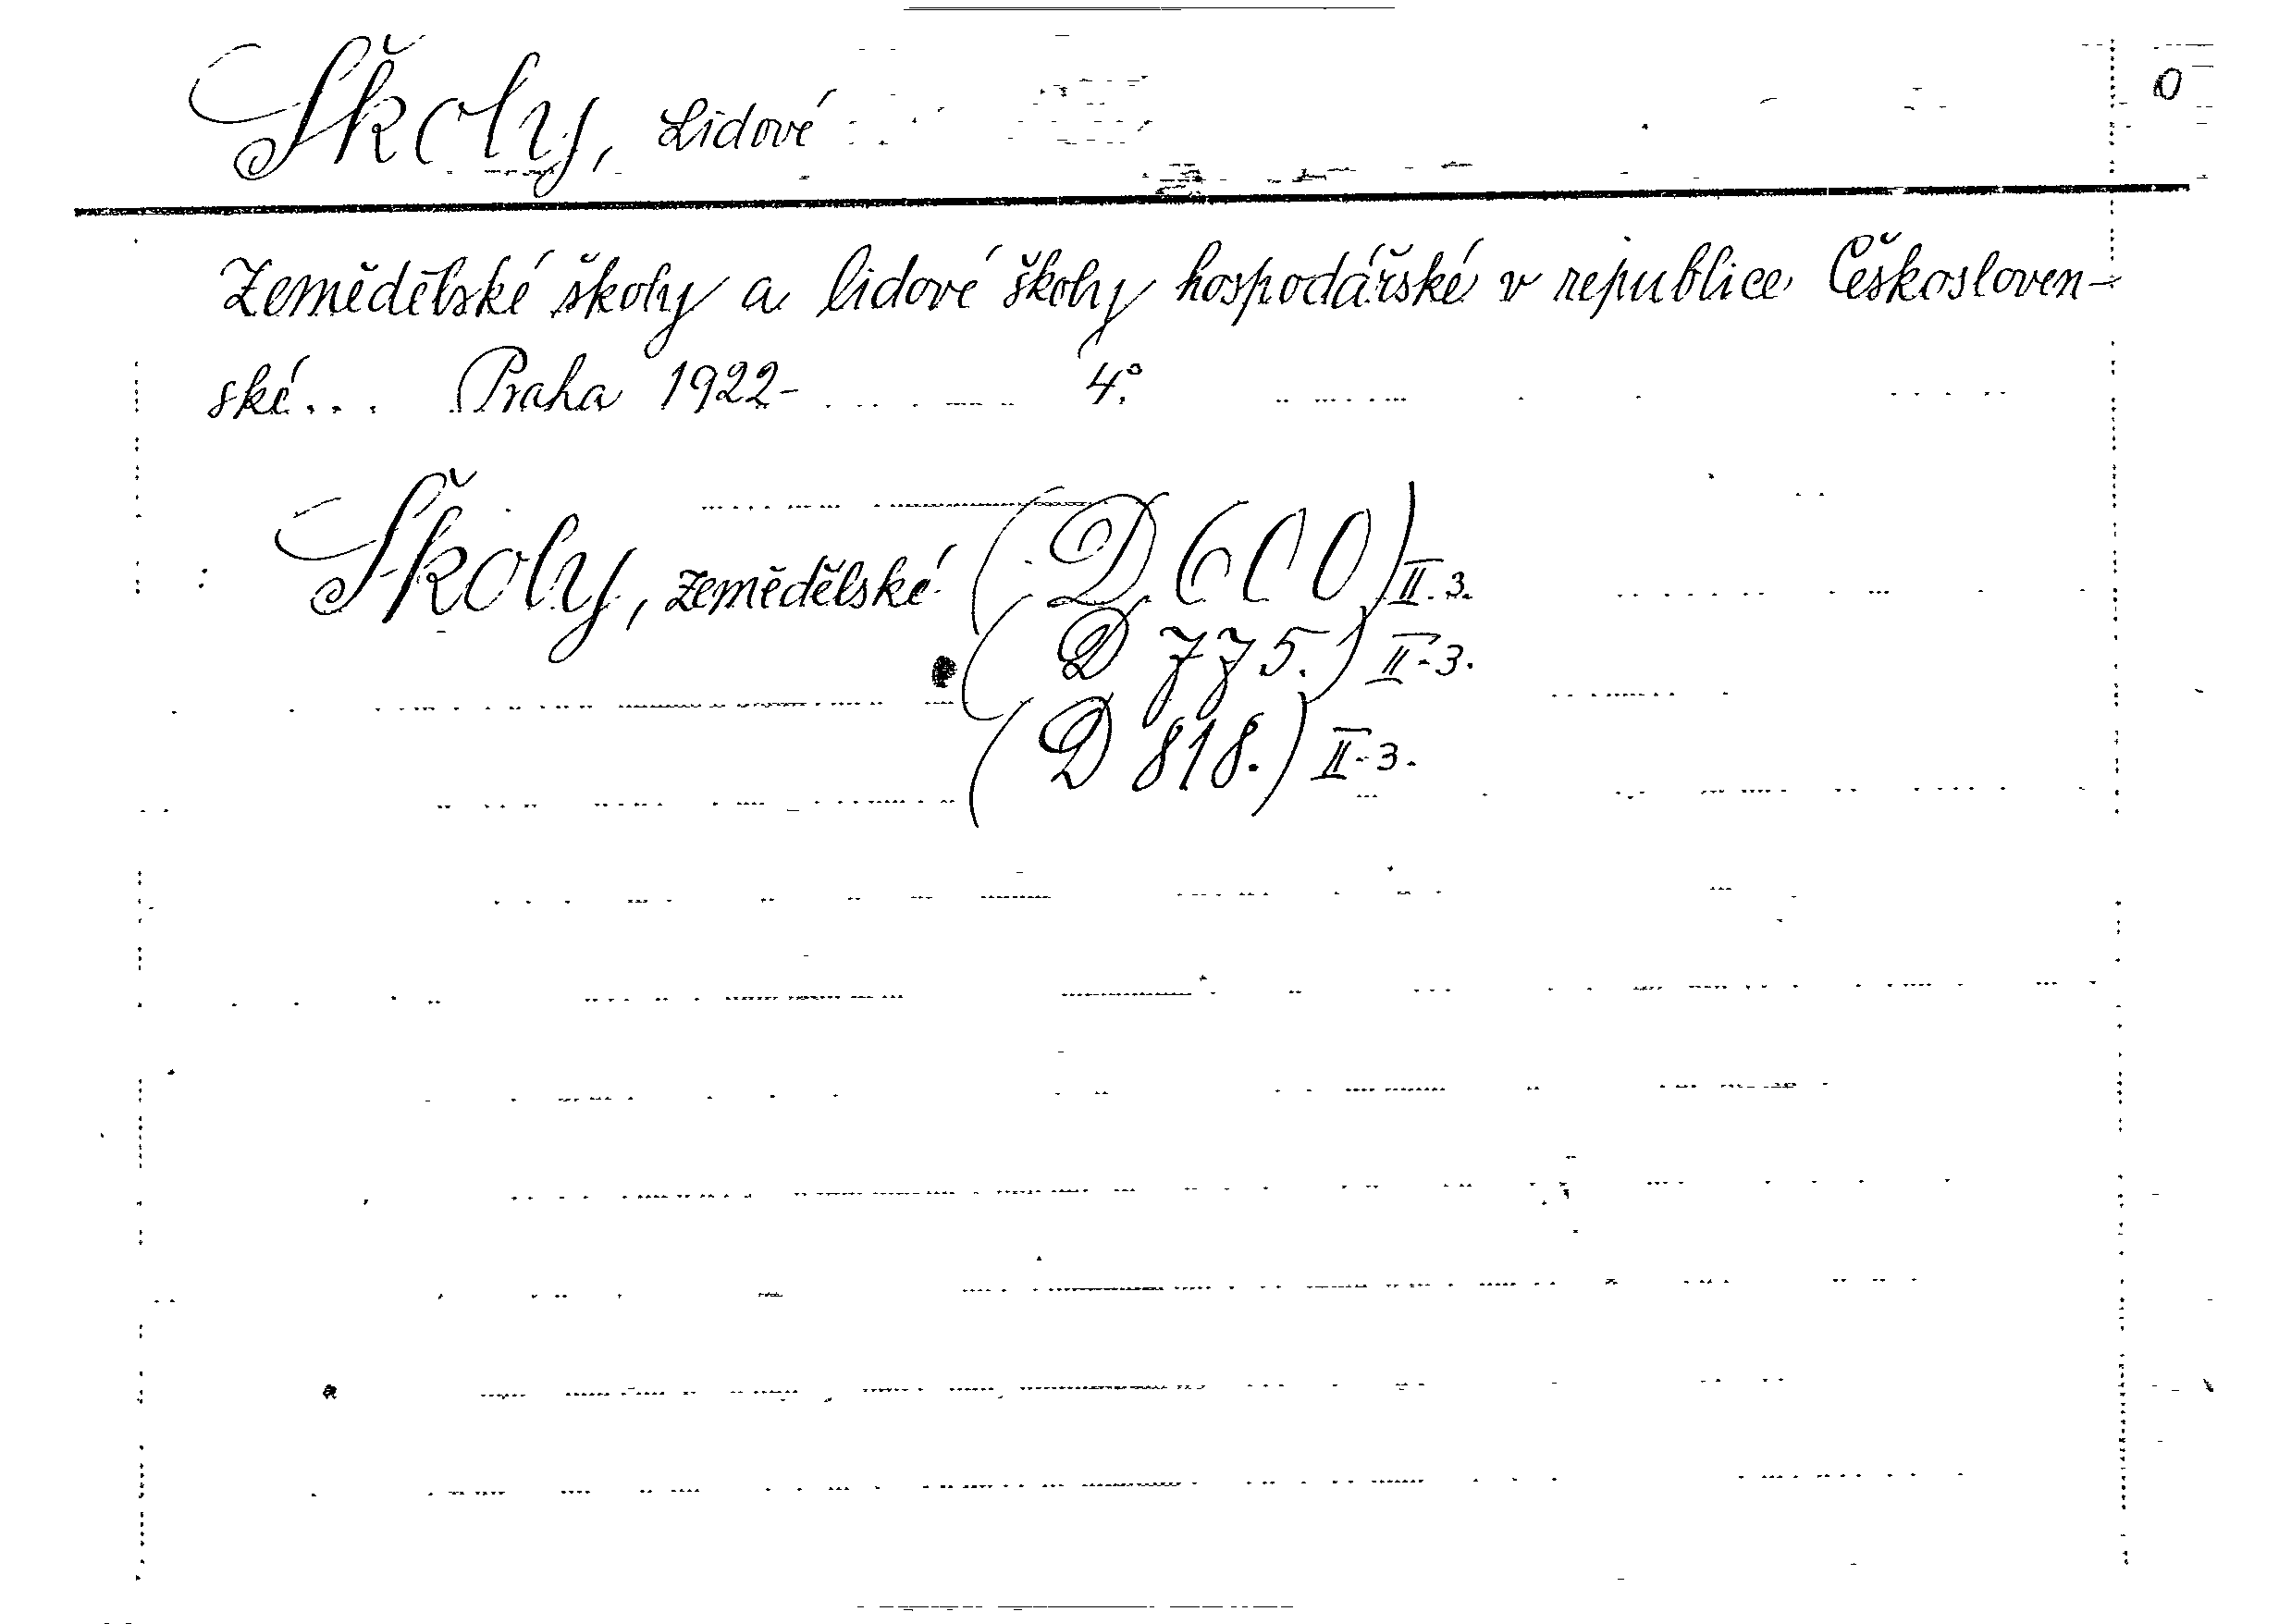 Školy, Lidové
O
Zemědělské školy a lidové školy hospodářské v republice Českosloven-
ské... Praha 1922- 4°.
Školy, zemědělské (D 600) II. 3.
(D 775.) II-3.
(D 818.) II-3.